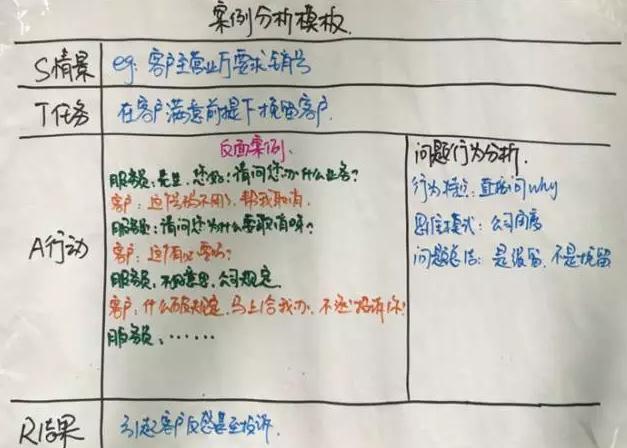 案例分析模板.
S情景
eg: 客户至营业厅要求销号
T任务
在客户满意前提下挽留客户.
A行动
反面案例.
服务员:先生.您好!请问您办什么业务?
客户:这个号码不用了,帮我取消.
服务员:请问您为什么要取消呀?
客户:这有必要吗?
服务员:不好意思,公司规定.
客户:什么破规定,马上给我办,不然投诉你!
服务员:……
问题行为分析.
行为特点:直接问why
思维模式:公司制度
问题总结:是假留,不是挽留
R结果
引起客户反感甚至投诉.